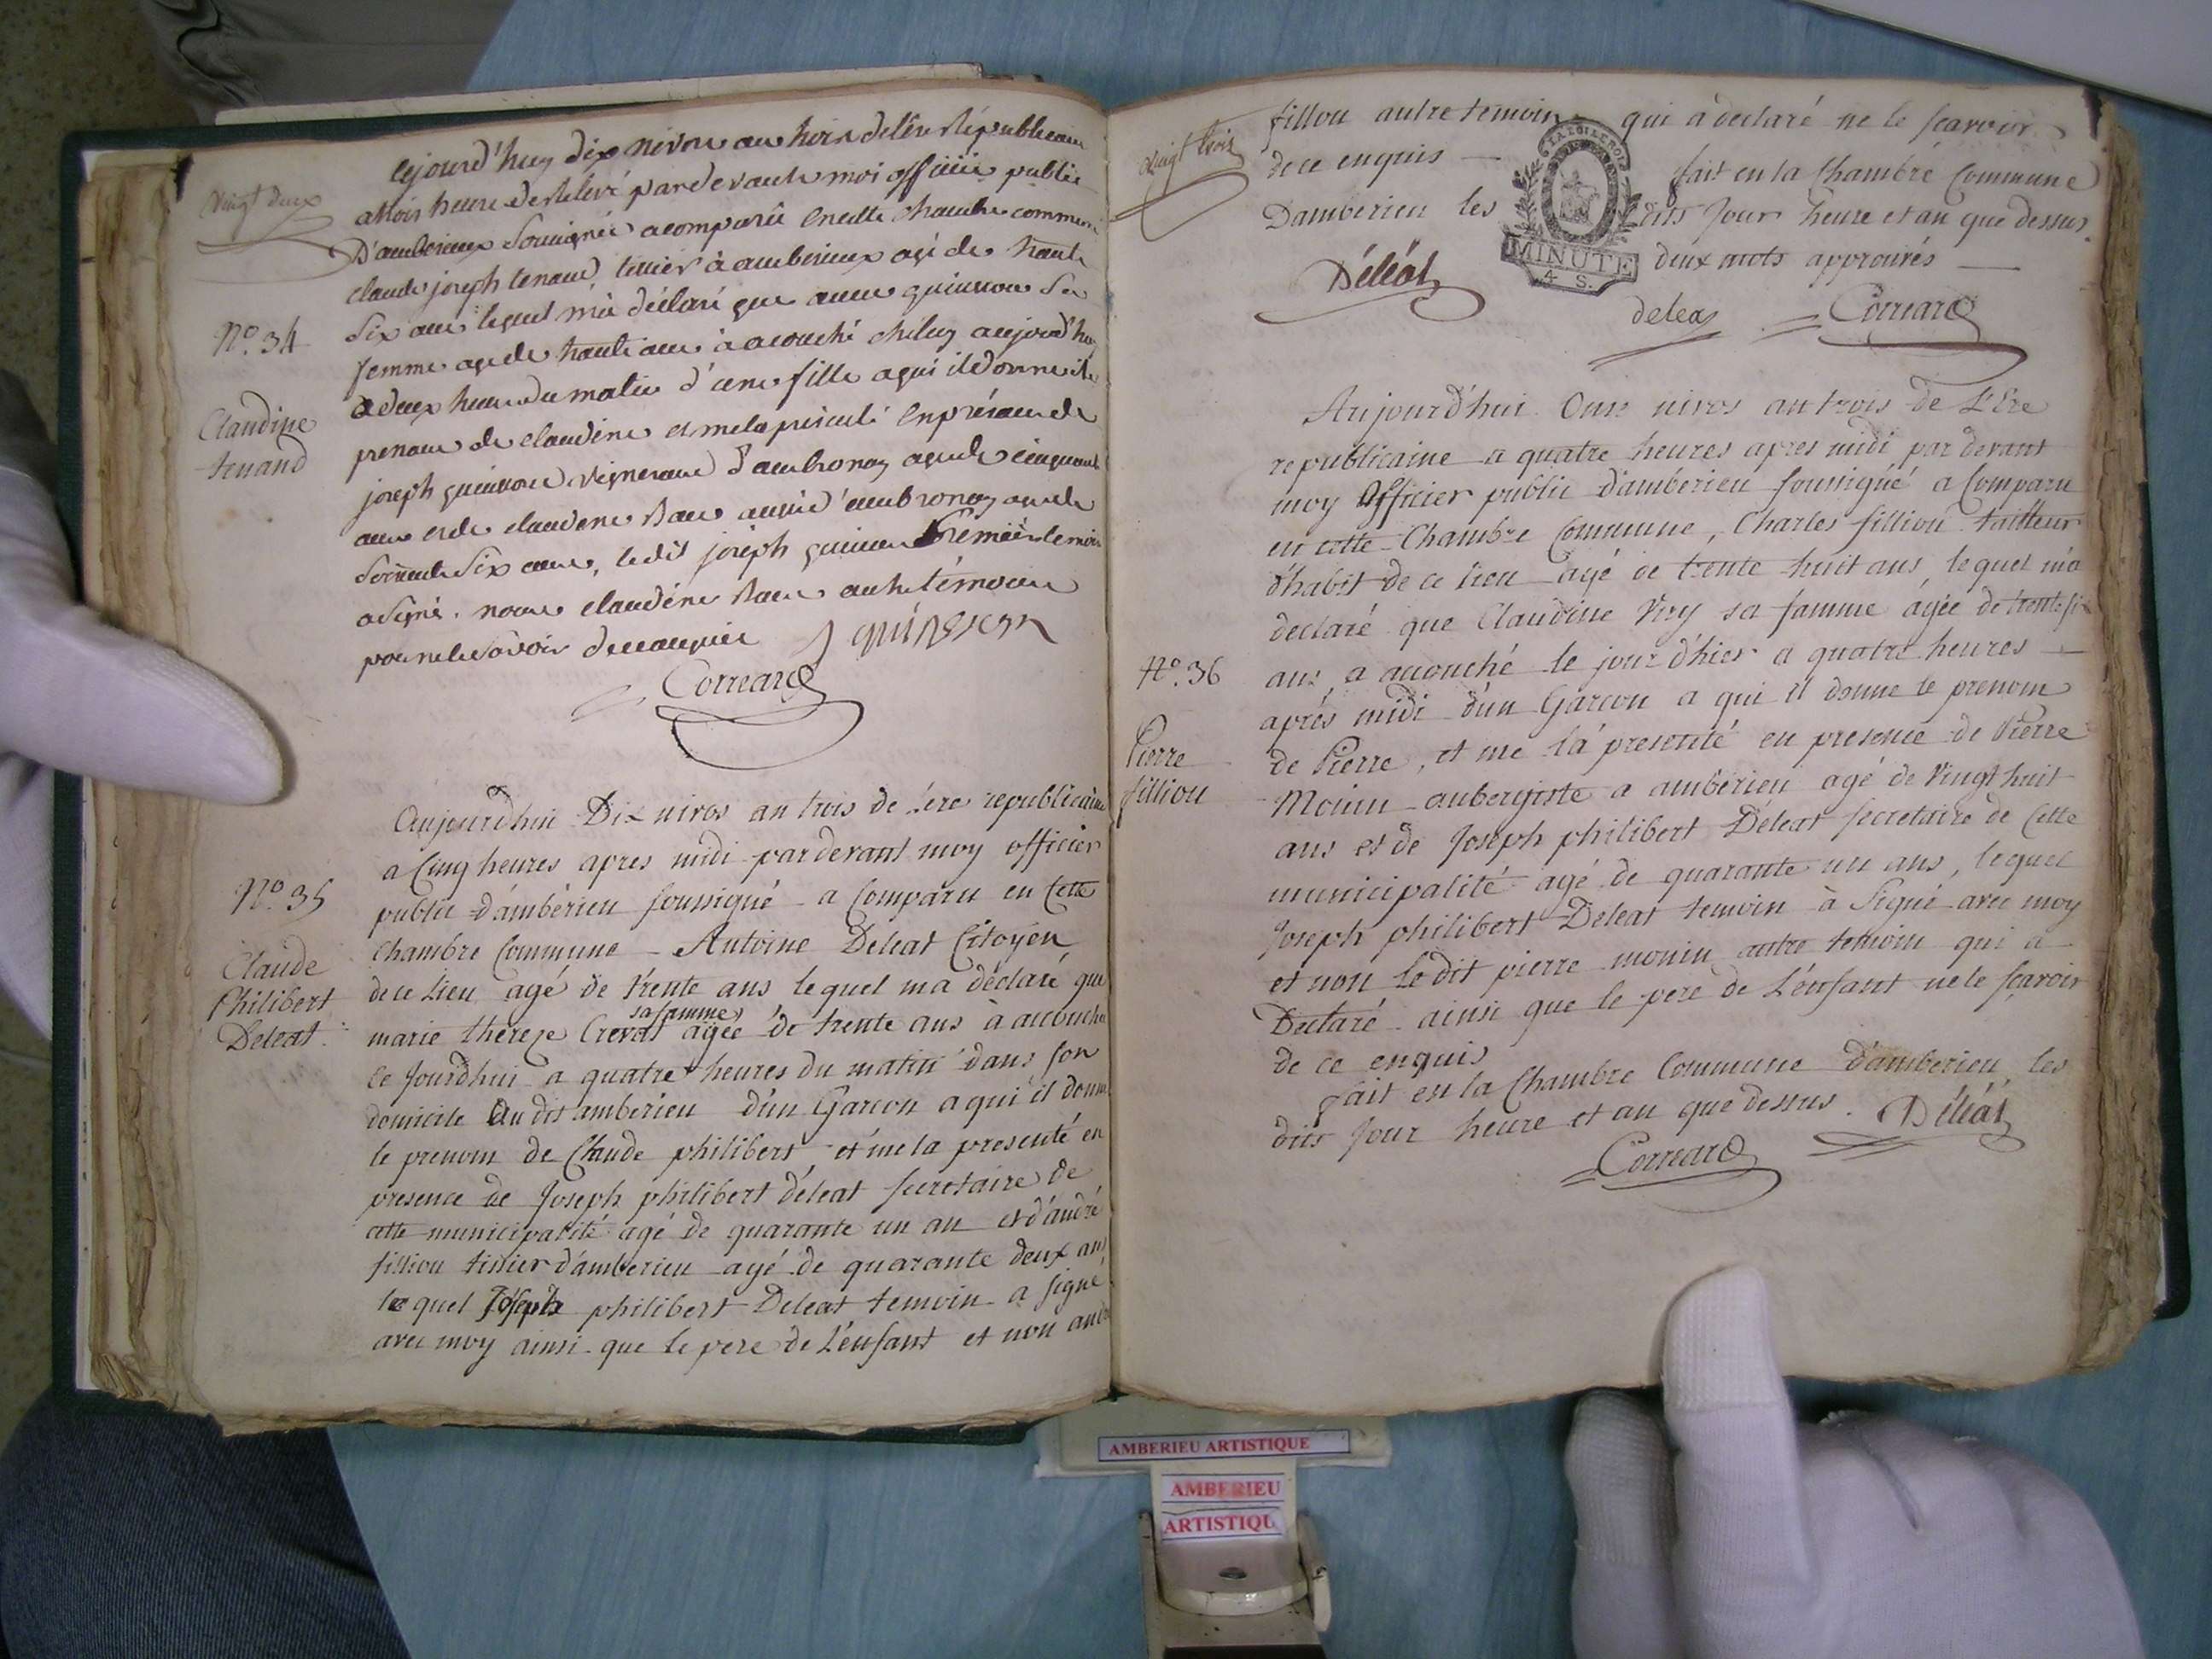 Vingt deux
cejourd'huy dix nivose an trois de l'ère Républicaine
a trois heure de relevé pardevant moi officier public
D'ambérieux Soussigné a comparû en cette chambre commune
claude joseph tenand tissier à amberieux agé de trante
Six ans lequel m'a déclaré que anne guinnon Sa
N.º 34
femme agé de trante ans à acouché chéluy aujourd'huy
Claudine
tenand
a deux heure du matin d'une fille a qui il donne le
prenom de claudine et me la présenté en présance de
joseph guinnon vigneron d'ambronay agé de cinquante
ans et de claudine aussi d'ambronay agé de
Soixante Six ans, ledit joseph guinnon premier temoin
a signé. non claudine autre témoin
pour ne le savoir de ce enquise J guinenon
Correard
Aujourdhui Dix nivos an trois de l'ere republicaine
a Cinq heures apres midi par devant moy officier
N.º 35
public d'ambérieu soussigné a Comparu en Cette
Chambre Commune Antoine Deleat Citoyen
Claude
Philibert
Deleat.
de ce Lieu agé de trente ans lequel m'a déclaré que
sa famme
marie thereze Crevat agée de trente ans à acouché
ce Jourdhui a quatre heures du matin dans son
domicile Audit amberieu d'un Garcon a qui il donne
le prenom de Claude philibert et me la presenté en
presence de Joseph philibert déleat secretaire de
cette municipalité agé de quarante un an et d'andré
filliou tissier d'amberieu agé de quarante deux ans
le quel Joseph philibert Deleat temoin a signé
avec moy ainsi que le pere de L'enfant et non andré
Vingt trois
fillou autre temoin qui a declaré ne le scavoir
de ce enquis — fait en la Chambre Commune
LA LOI LE ROI
Damberieu les dits Jour heure et an que dessus.
MINUTE
4 S.
deux mots approuvés —
Déléat
deleat Correard
Aujourd'hui Onze nivos an trois de L'Ere
republicaine a quatre heures apres midi par devant
moy Officier public d'ambérieu soussigné a Comparu
en cette Chambre Commune, Charles filliou tailleur
d'habit de ce lieu agé de trente huit ans, lequel m'a
declaré que Claudine Viry sa famme agée de trente six
N.º 36
ans, a acouché le jour d'hier a quatre heures —
après midi d'un Garcon a qui il donne le prenom
Pierre
filliou
de Pierre, et me l'a presenté en presence de Pierre
Monin aubergiste a ambérieu agé de Vingt huit
ans et de Joseph philibert Déleat secretaire de Cette
municipalité agé de quarante un ans, lequel
Joseph philibert Déleat temoin à Signé avec moy
et non le dit pierre monin autre temoin qui a
Declaré ainsi que le pere de L'enfant ne le scavoir
de ce enquis
fait en la Chambre Commune d'amberieu les
dits Jour heure et an que dessus. Déléat
Correard
AMBERIEU ARTISTIQUE
AMBERIEU
ARTISTIQU